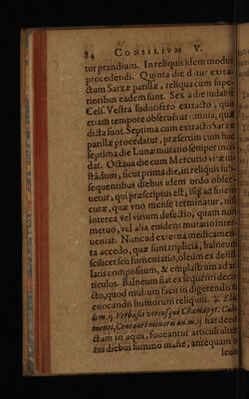 84 CONSILIVM V.
tur prandium. In reliquis idem modus
procedendi. Quinta die datur extra-
ctum Sarzæ parillæ, reliqua cum supe-
rioribus eadem sunt. Sexta die iudabit
Cels. Vestra sudorifero extracto, quo
etiam tempore obseruetur omnia, quæ
dicta sunt. Septima cum extracto Sarzæ
parillæ procedatur, præsertim cum hac
septima die Lunæ mutatio semper inci-
dat. Octaua die cum Mercurio viæ in-
stádum, sicut prima die, in reliquis sub-
sequentibus diebus idem ordo obser-
uetur, qui præscriptus est, usq; ad finem
curæ, quæ vno mense terminatur, nisi
interea vel virium defectio, quam non
metuo, vel alia euidens mutatio inter-
ueniat. Nunc ad externa medicamen-
ta accedo, quæ sunt triplicia, balneum
scilicet seu fomentatio, oleum ex de
latis compositum, & emplastrum ad ar-
ticulos. Balneum fiat ex sequenti deco-
cto, quod multum facit in digerendis &
euocandis humorum reliquiis.
m.ij. Verbasci vtriusq; Chamæpyt.
Centaurii minoris an. m.ij. fiat deco-
ctum in aqua, foueantur articuli alter-
nis diebus summo mane, antequam